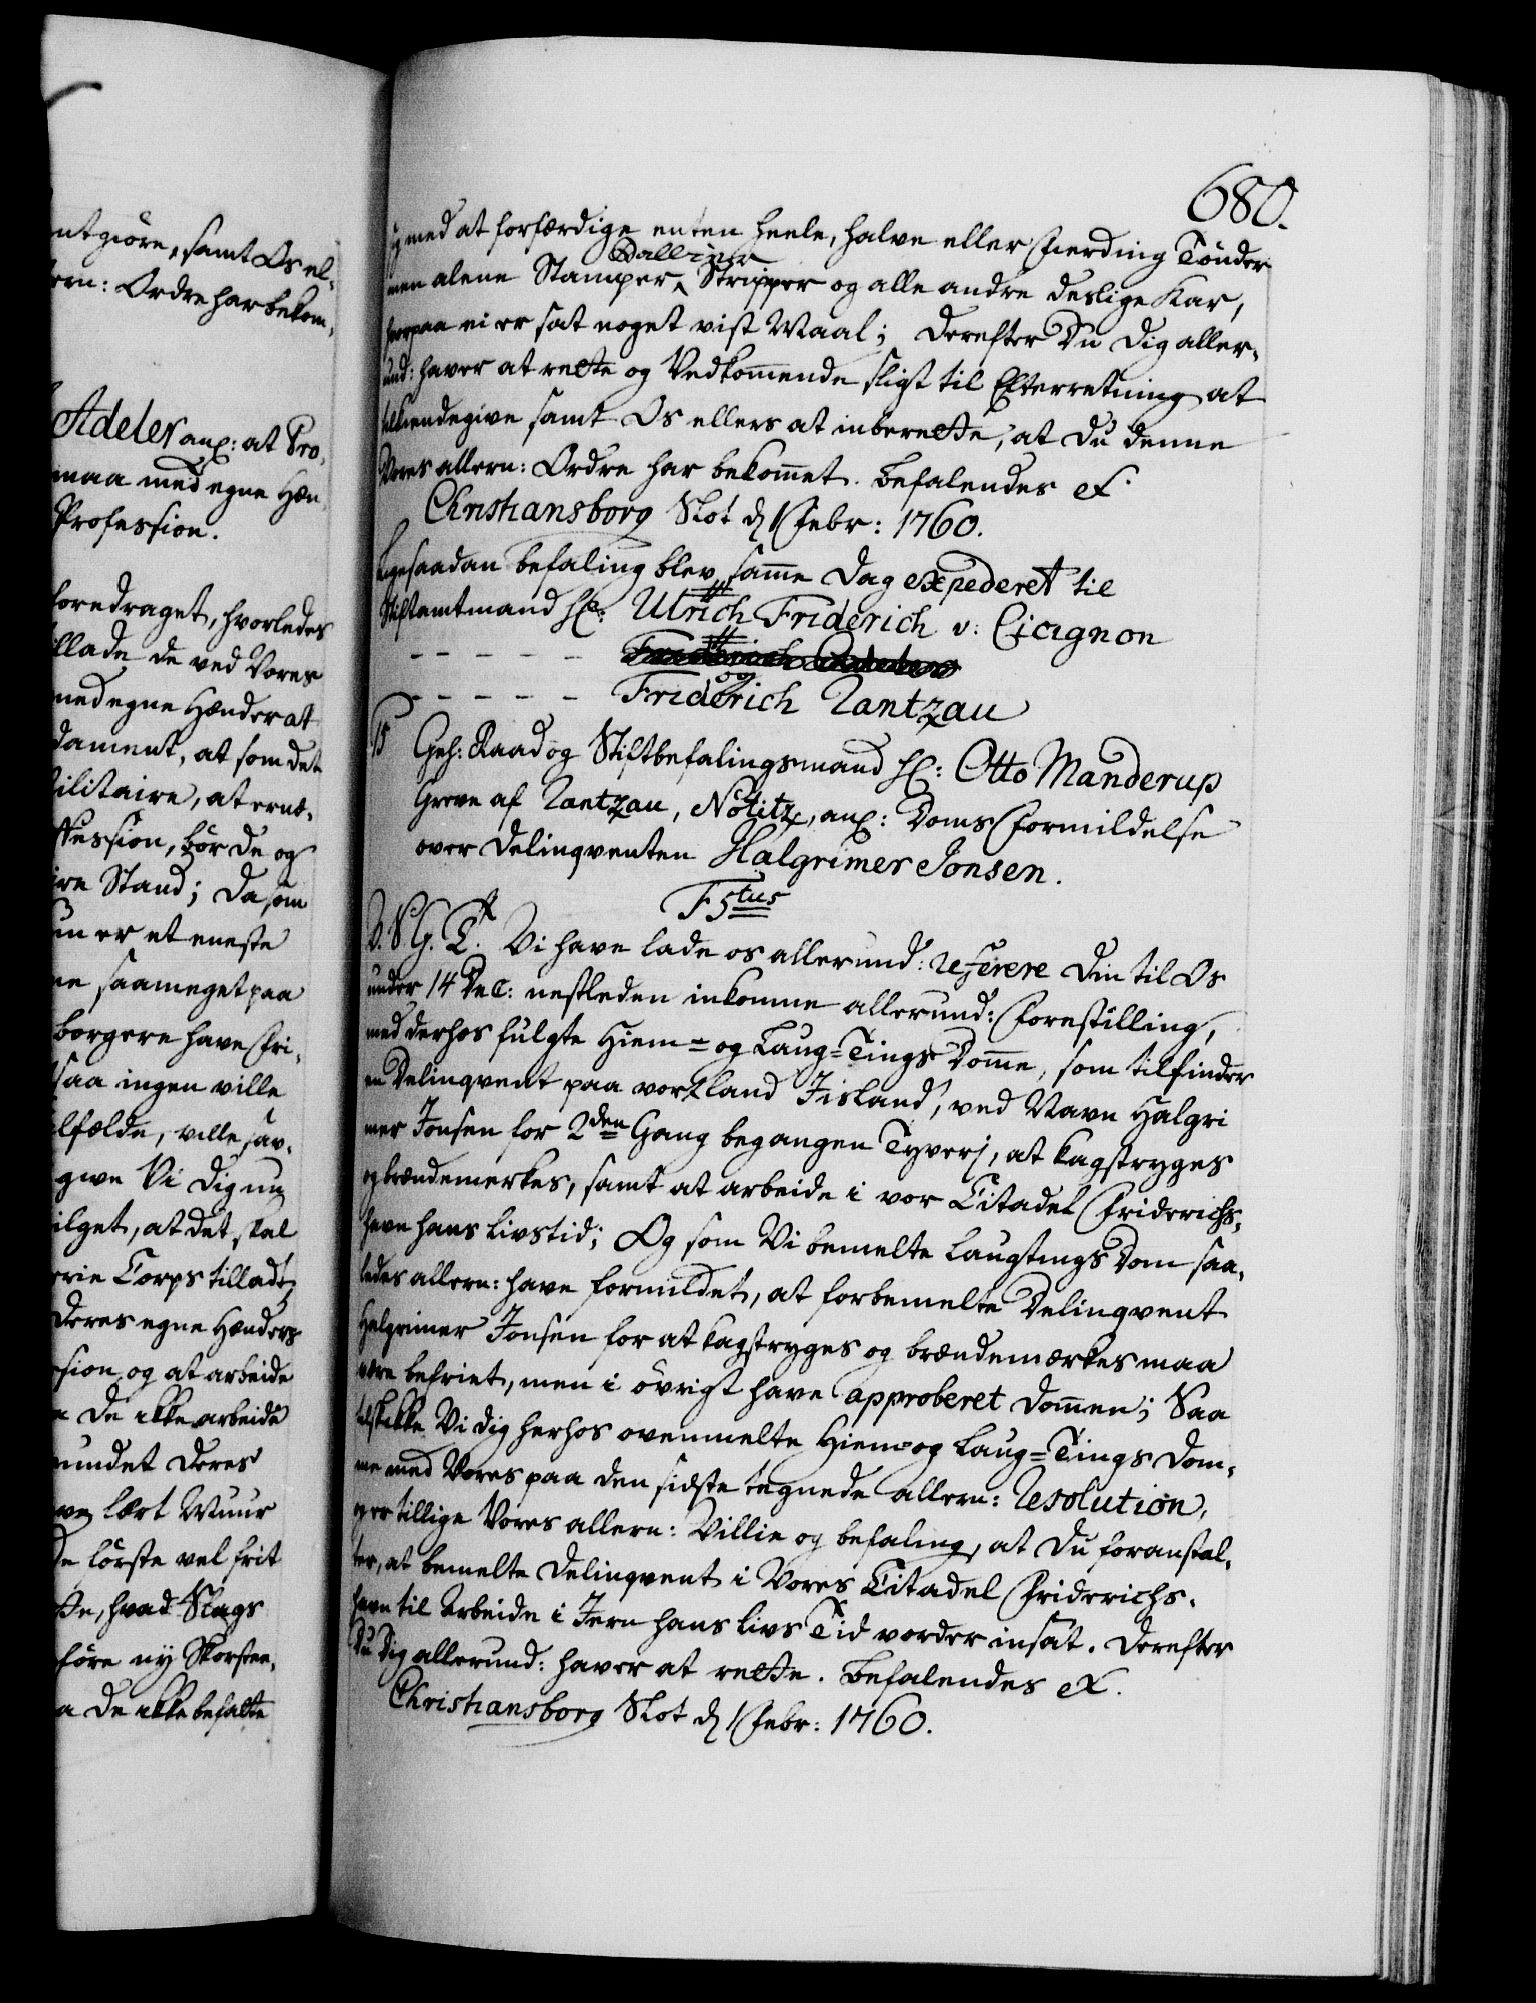 ntgiöre, samt Os el-
ern: Ordre har bekom-
Adeler anl: at Pro-
maa med egne Hæn-
Profession.
foredraget, hvorledes
illade de ved Vores
med egne Hænder at
dament, at som det
ilitaire, at ernæ-
ofession, bör de og
ire Stand; da som
un er et eneste
ne saameget paa
borgere have Fri-
saa ingen ville
lfælde, ville sav-
give Vi dig nu
ilget, at det skal
erie Corps tilladt
deres egne Hænders
sion og at arbeide
de ikke arbeide
undet deres
lært Muur
de första vel frit
tte, hvad Slags
före ny Skorstee-
a de ikke befatte
680.
ig med at forfærdige enten heele, halve eller Fierding Tönder
men alene Stamper, Balliner Stripper og alle andre deslige Kar,
hvorpaa ei er sat noget vist Maal; Derefter Du dig aller-
und: haver at rette og Vedkommende sligt til Efterretning at
tilkiendegive samt Os ellers at inberette, at du denne
Vores allern: Ordre har bekommet. Befalendes etc.
Christiansborg Slot d 1 Febr: 1760.
Ligesaadan befaling blev samme Dag expederet til
Stiftamtmand Hr: Ulrich Friderich v: Cicignon
- - - - - Friderich
og
- - - - - Friderich Rantzau
15 Geh: Raad og Stiftbefalingsmand Hr: Otto Manderup
Greve af Rantzau, Notitz, anl: Doms Formildelse
over Delinqventen Halgrimer Jonsen.
F 5tus
V. S. G. T. Vi have lade os allerund: referere din til Os
under 14 Dec: nestleden inkomne allerund: Forestilling,
med derhos fulgte Hiem- og Laug-Tings Domme, som tilfinder
en Delinqvent paa vort land Jisland, ved Navn Halgri
mer Jonsen for 2den Gang begangen Tyverj, at kagstryges
og brendemerkes, samt at arbeide i vor Citadel Friderichs-
havn hans livstid; Og som Vi bemelte Laugtings Dom saa-
ledes allern: have formildet, at forbemelte Delinqvent
Halgrimer Jonsen for at kagstryges og brendemærkes maa
være befriet, men i övrigt have approberet dommen; Saa
tilskikke Vi dig herhos ovenmelte Hiem- og Laug-Tings Dom-
me med Vores paa den sidste tegnede allern: Resolution,
og er tillige Vores allern: Villie og befaling, at Du foranstal-
ter, at bemelte Delinqvent i Vores Citadel Friderichs-
havn til Arbeide i Jern hans livs Tid vorder insat. Derefter
Du dig allerund: haver at rette. Befalendes etc.
Christiansborg Slot d 1 Febr: 1760.